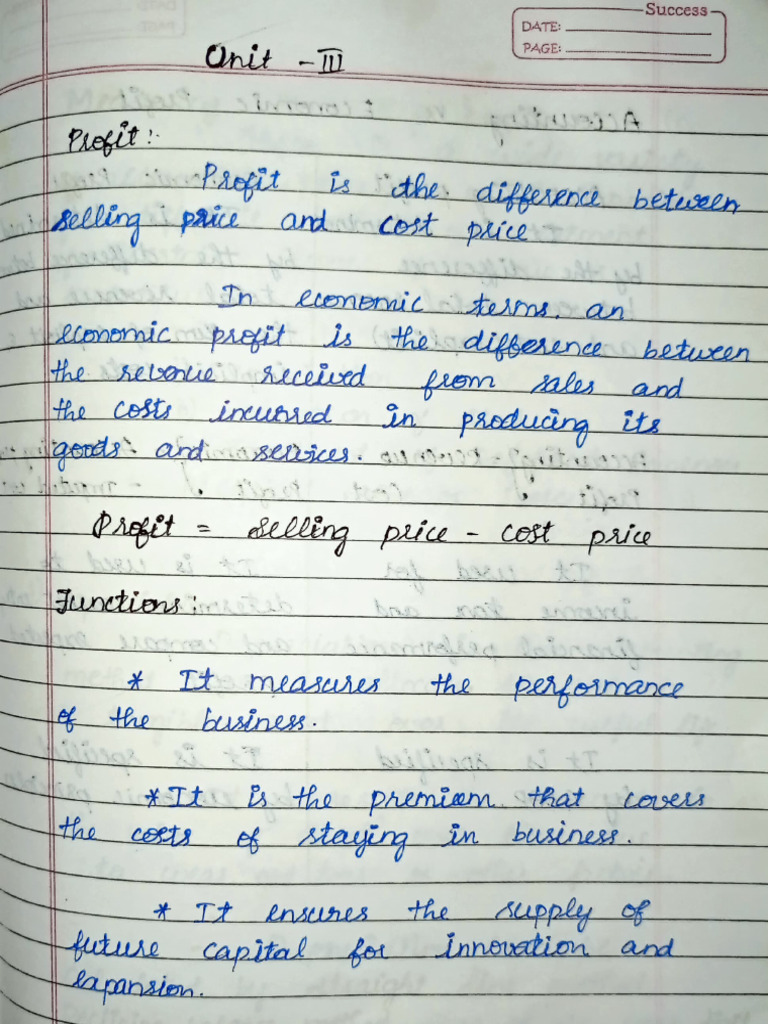 Success
DATE:
PAGE:
Unit - III
Profit:-
Profit is the difference between
selling price and cost price
In economic terms, an
economic profit is the difference between
the revenue received from sales and
the costs incurred in producing its
goods and services.
Profit = selling price - cost price
Functions:
* It measures the performance
of the business.
* It is the premium that covers
the costs of staying in business.
* It ensures the supply of
future capital for innovation and
expansion.